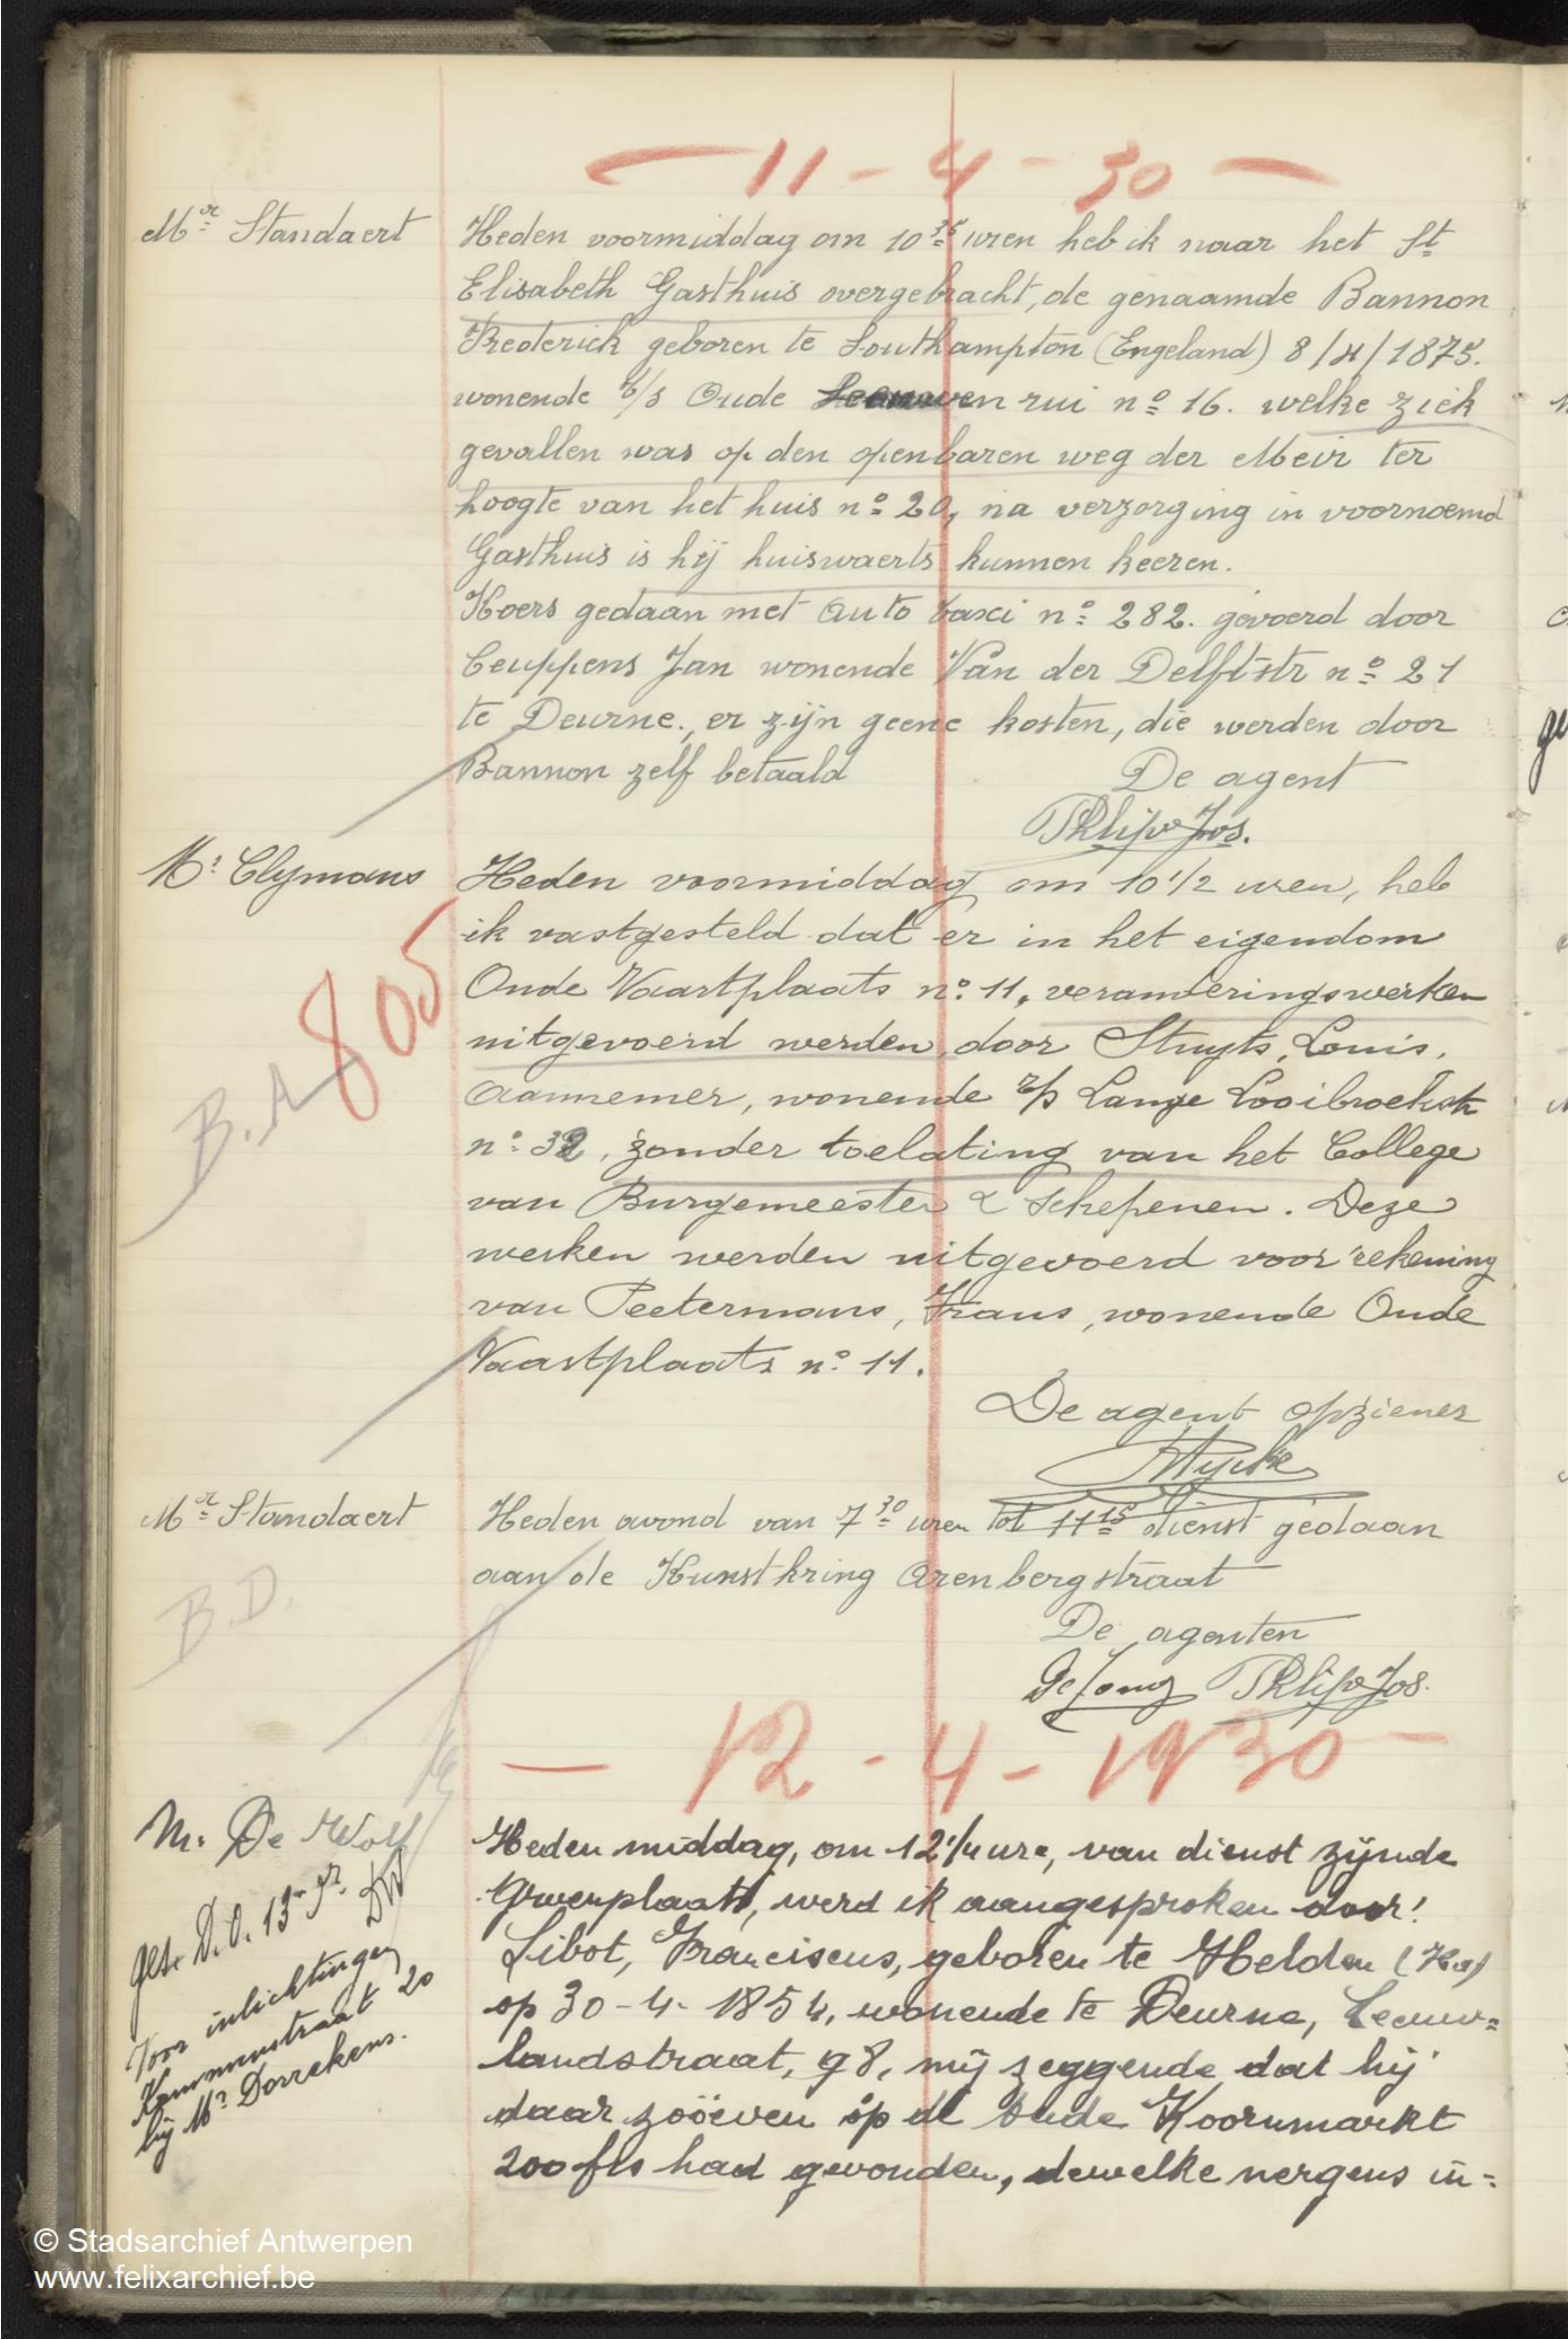 — 11 - 4 - 30 —
Mr Standaert
Heden voormiddag om 10 35 uren heb ik naar het St
Elisabeth Gasthuis overgebracht, de genaamde Bannon
Frederick geboren te Southampton (Engeland) 8/4/1875.
wonende b/s Oude Leeuwen rui no 16. welke ziek
gevallen was op den openbaren weg der Meir ter
hoogte van het huis no 20, na verzorging in voornoemd
Gasthuis is hij huiswaerts kunnen keeren.
Koers gedaan met Auto Taxi no 282. gevoerd door
Ceuppens Jan wonende Van der Delftstr no 21
te Deurne., er zijn geene kosten, die werden door
Bannon zelf betaald
De agent
Philips Jos.
Mr Clymans
B.A 805
Heden voormiddag om 10 1/2 uren, heb
ik vastgesteld dat er in het eigendom
Oude Vaartplaats no 11, veranderingswerken
uitgevoerd werden, door Stuyts, Louis,
Aannemer, wonende Lange Looibroekstr
no 32, zonder toelating van het College
van Burgemeester & Schepenen. Deze
werken werden uitgevoerd voor rekening
van Peetermans, Frans, wonende Oude
Vaartplaats no 11.
De agent opziener
Mr Standaert
B.D.
Heden avond van 7 30 uren tot 11 15 dienst gedaan
aan de Kunstkring Arenbergstraat
De agenten
De Jong Philips Jos.
— 12 - 4 - 1930 —
M. De Wolf
Voor inlichtingen
Kammenstraat 20
bij Mr Dorrekens.
Heden middag, om 12 1/4 ure, van dienst zijnde
Groenplaats, werd ik aangesproken door:
Libot, Franciscus, geboren te Helden (Ho)
op 30-4-1854, wonende te Deurne, Leeuw=
landstraat, 98, mij zeggende dat hij
daar zoöeven op de Oude Koornmarkt
200 frs had gevonden, dewelke nergens in=
© Stadsarchief Antwerpen
www.felixarchief.be